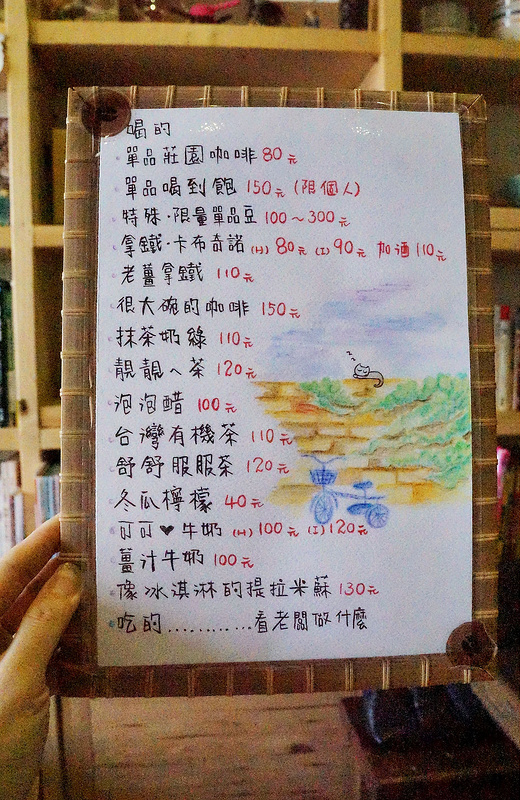 喝的
單品莊園咖啡 80元
單品喝到飽 150元 (限個人)
特殊·限量單品豆 100~300元
拿鐵·卡布奇諾 (H) 80元 (I) 90元 加酒110元
老薑拿鐵 110元
很大碗的咖啡 150元
抹茶奶綠 110元
靚靚ㄟ茶 120元
泡泡醋 100元
台灣有機茶 110元
舒舒服服茶 120元
冬瓜檸檬 40元
可可♥牛奶 (H) 100元 (I) 120元
薑汁牛奶 100元
像冰淇淋的提拉米蘇 130元
吃的..........看老闆做什麼